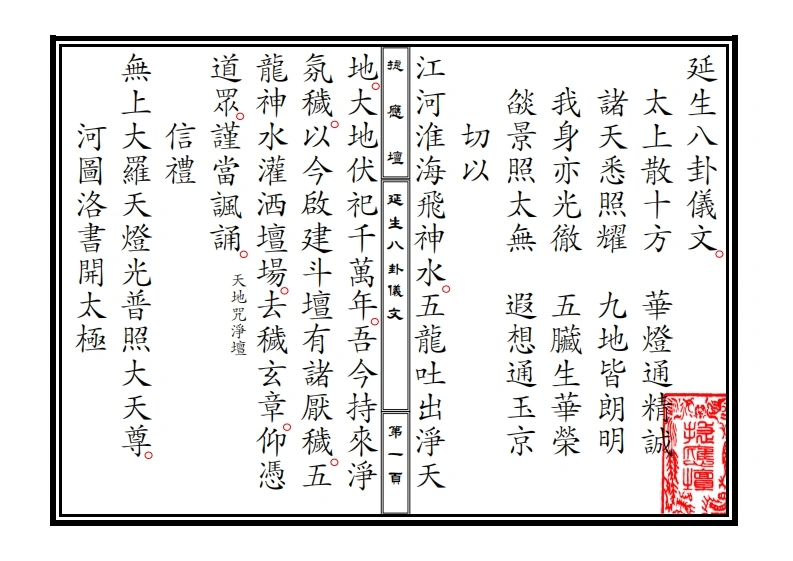 延生八卦儀文。
太上散十方 華燈通精誠
諸天悉照耀 九地皆朗明
我身亦光徹 五臟生華榮
燄景照太無 遐想通玉京
切以
江河淮海飛神水。五龍吐出淨天
捷應壇
延生八卦儀文
第一頁
地。大地伏祀千萬年。吾今持來淨
氛穢。以今啟建斗壇有諸厭穢。五
龍神水灌洒壇場。去穢玄章。仰憑
道眾。謹當諷誦。
天地咒淨壇
信禮
無上大羅天燈光普照大天尊。
河圖洛書開太極